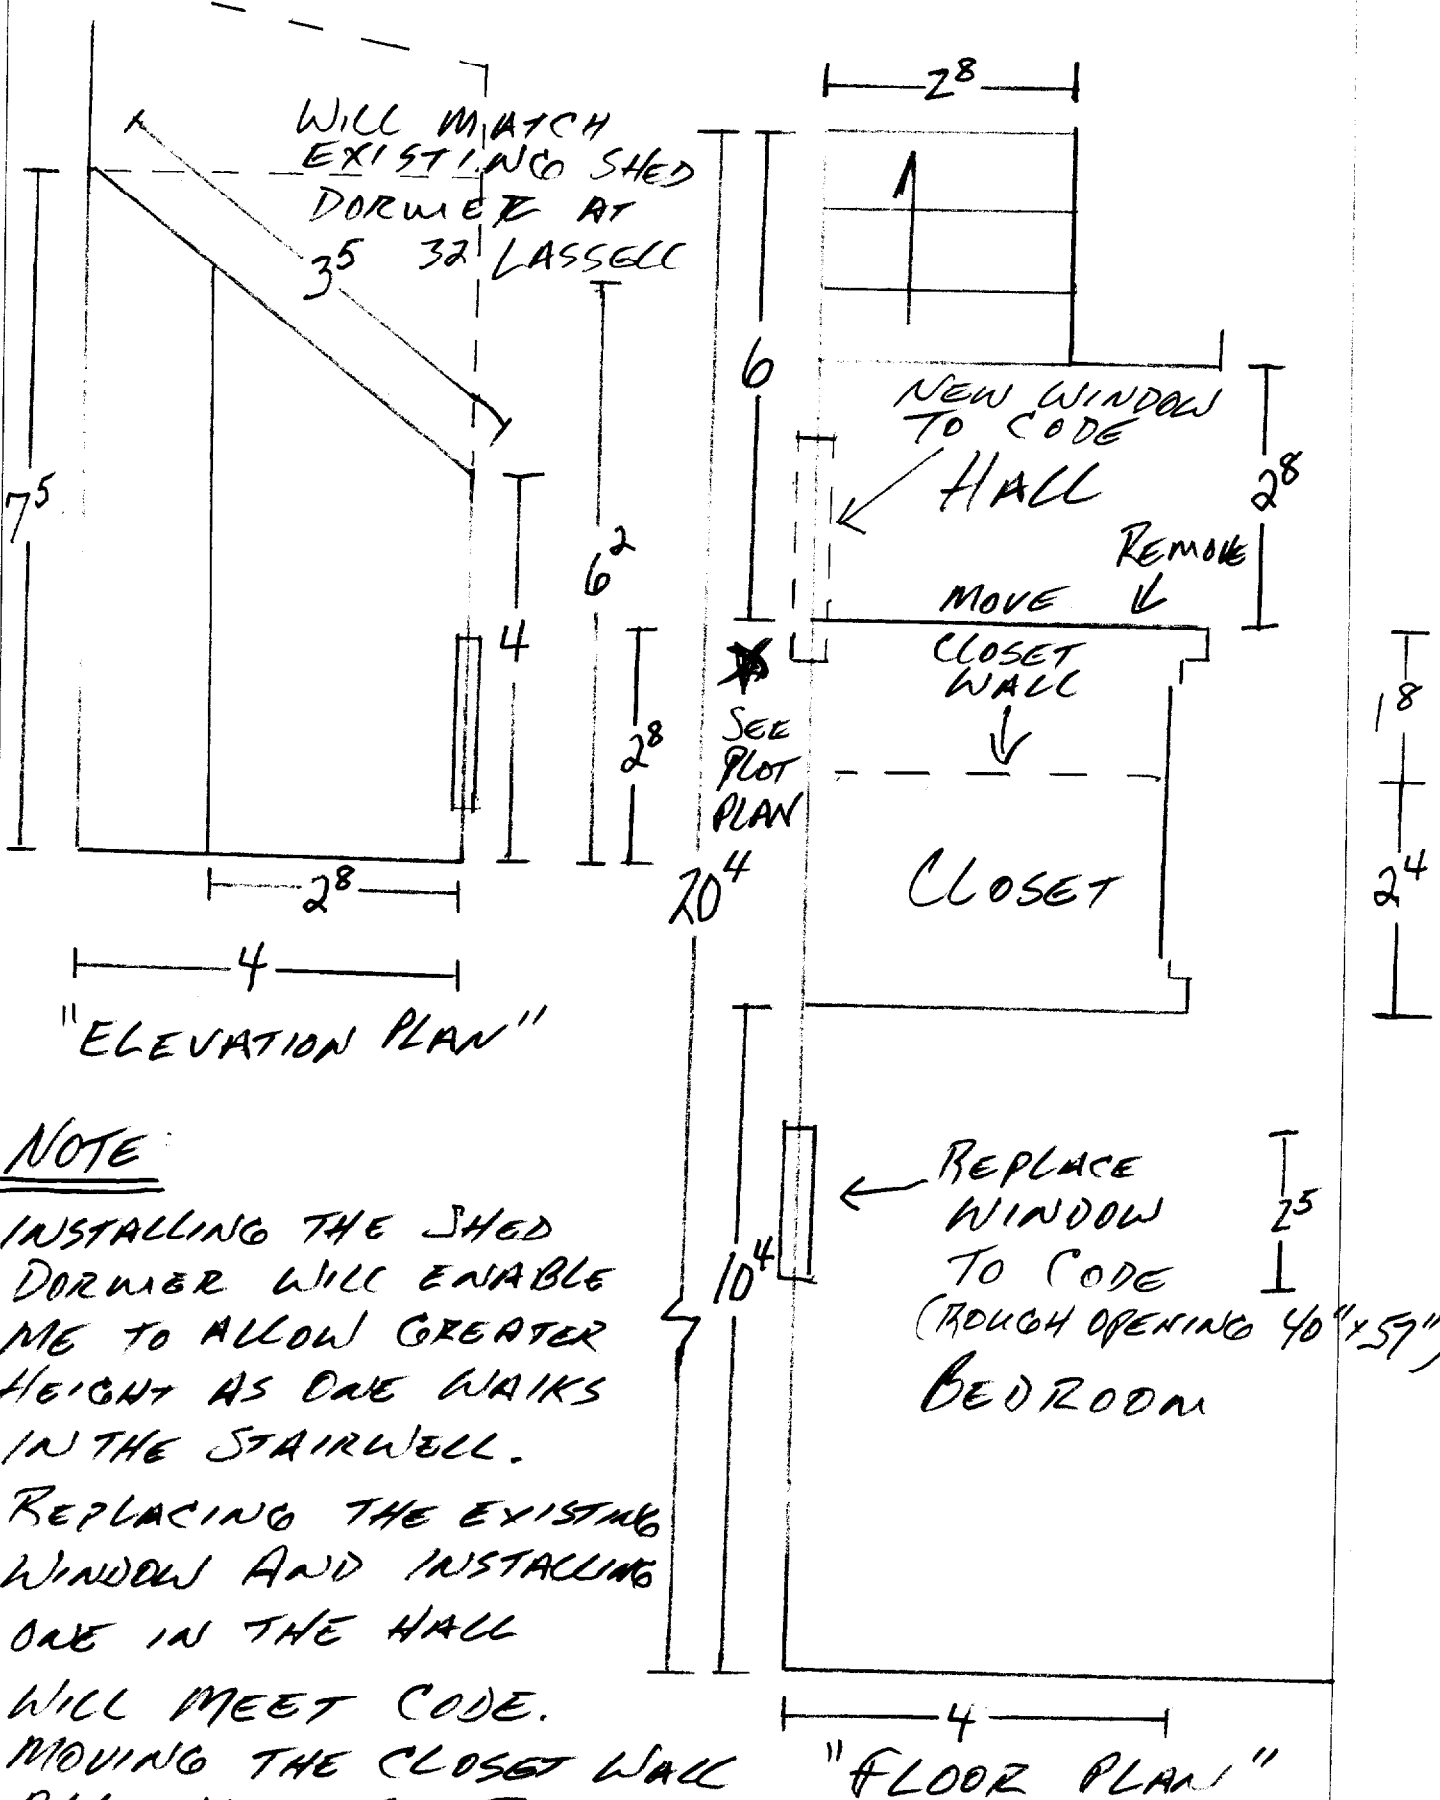 2⁸
WILL MATCH
EXISTING SHED
DORMER AT
32 LASSELL
3⁵
7⁵
4
6²
2⁸
2⁸
4
"ELEVATION PLAN"
NOTE
INSTALLING THE SHED
DORMER WILL ENABLE
ME TO ALLOW GREATER
HEIGHT AS ONE WALKS
IN THE STAIRWELL.
REPLACING THE EXISTING
WINDOW AND INSTALLING
ONE IN THE HALL
WILL MEET CODE.
MOVING THE CLOSET WALL
6
NEW WINDOW
TO CODE
HALL
2⁸
REMOVE
MOVE
CLOSET
WALL
SEE
PLOT
PLAN
1⁸
20⁴
CLOSET
2⁴
REPLACE
WINDOW
TO CODE
(ROUGH OPENING 40"x59")
2⁵
10⁴
BEDROOM
4
"FLOOR PLAN"